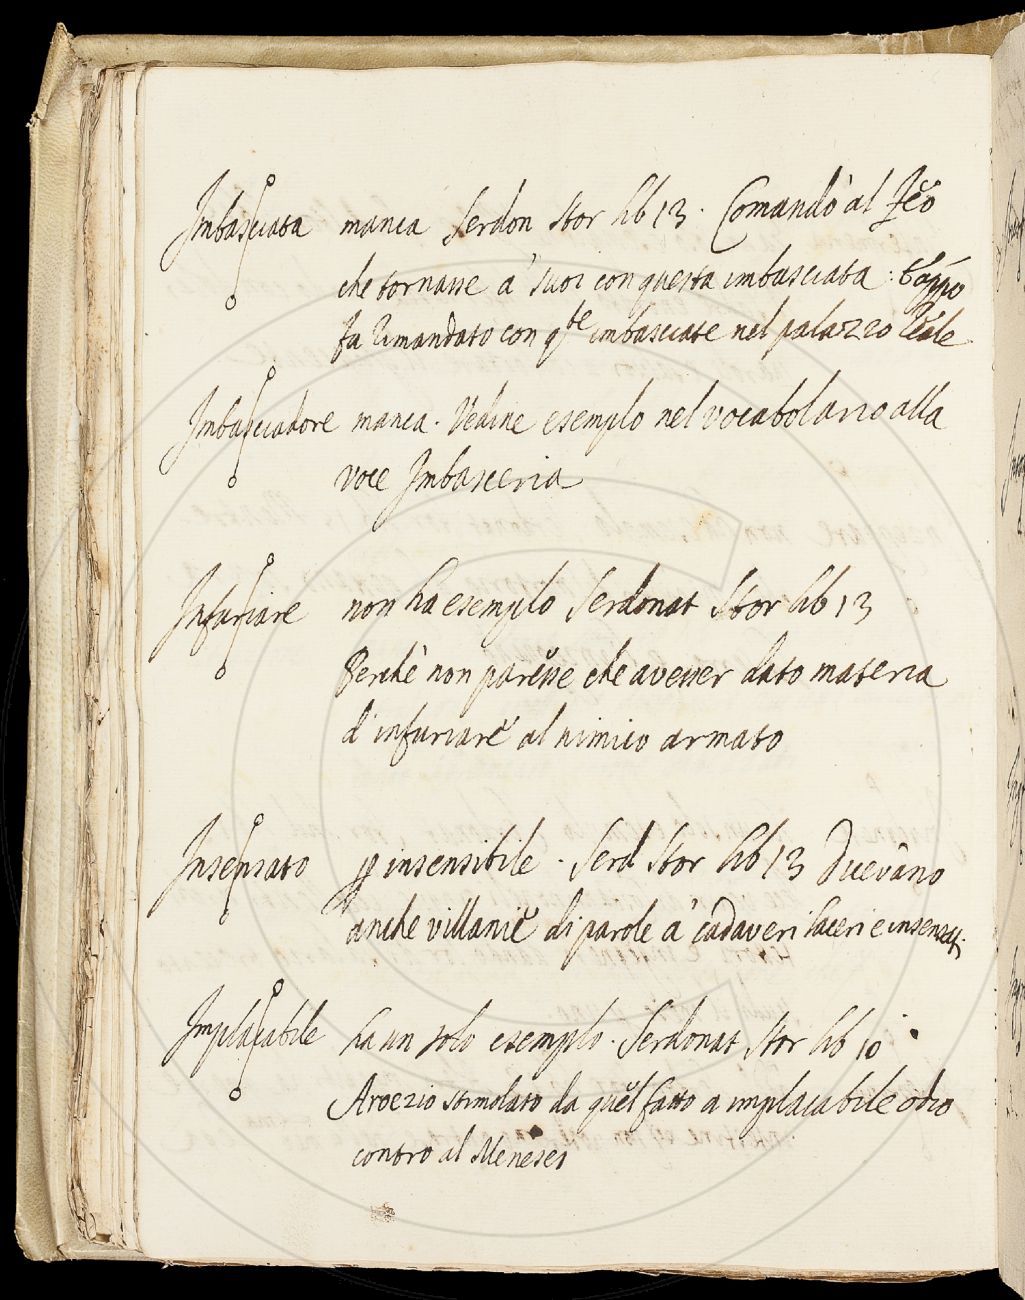 Imbasciata manca Serdon Stor lib 13. Comandò al
che tornasse a' suoi con questa imbasciata:
fu rimandato con q.te imbasciate nel palazzo Reale
Imbasciadore manca. Vedine esemplo nel vocabolario alla
voce Imbasceria
Infuriare non ha esemplo Serdonat Stor lib 13
Perchè non paresse che avesser dato materia
d'infuriare al nimico armato
Insensato insensibile. Serd Stor lib 13 Dicevano
anche villanie di parole a' cadaveri laceri e insensati.
Implacabile ha un solo esemplo. Serdonat Stor lib 10
stimolato da quel fatto a implacabile odio
contro al Meneses